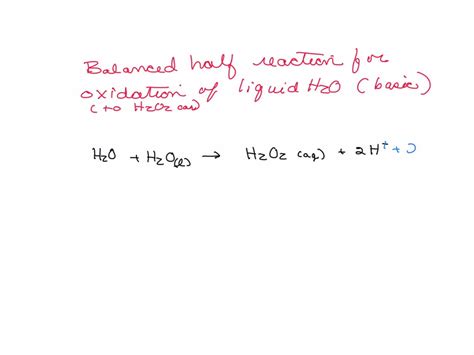 Balanced half reaction for
oxidation of liquid H2O (basic)
(to H2O2 aq)
H2O + H2O(l) → H2O2 (aq) + 2H+ +